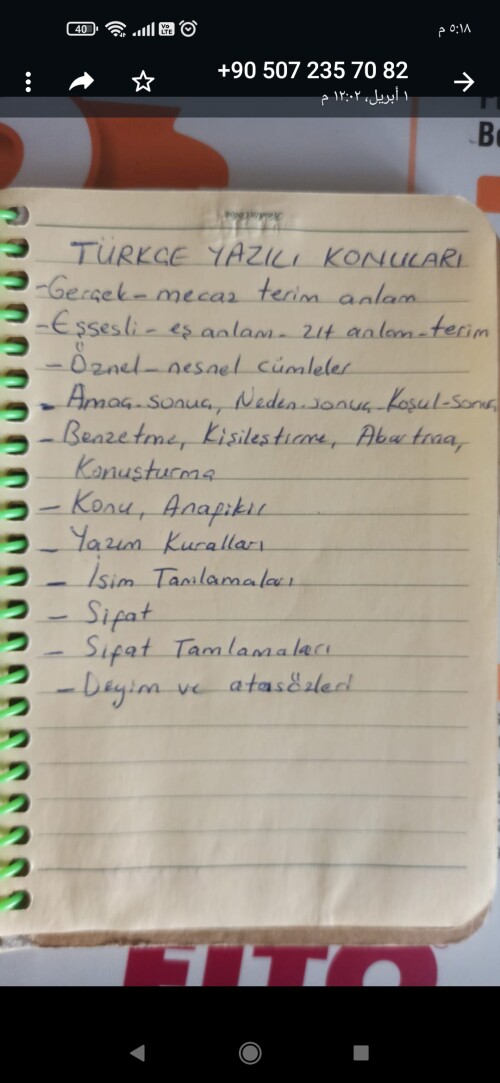 40
Vo
LTE
٥:١٨ م
+90 507 235 70 82
١ أبريل، ١٢:٠٢ م
TÜRKÇE YAZILI KONULARI
-Gerçek-mecaz terim anlam
-Eşsesli-eş anlam-zıt anlam-terim
-Öznel-nesnel cümleler
-Amaç-sonuç, Neden-sonuç-Koşul-Sonuç
-Benzetme, Kişileştirme, Abartma,
Konuşturma
-Konu, Anafikir
-Yazım Kuralları
-İsim Tamlamaları
-Sıfat
-Sıfat Tamlamaları
-Deyim ve atasözleri